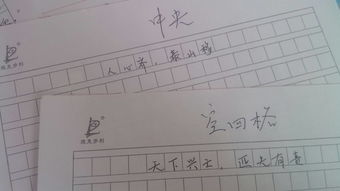 中央
人心齐，泰山移
空四格
天下兴亡，匹夫有责